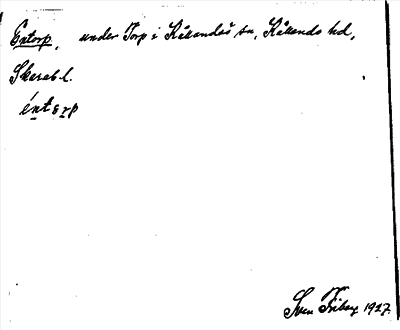 Entorp, under Torp i Kållands-ås sn, Kållands hd,
Skarab. l.
éntorp
Sven Friberg 1927.